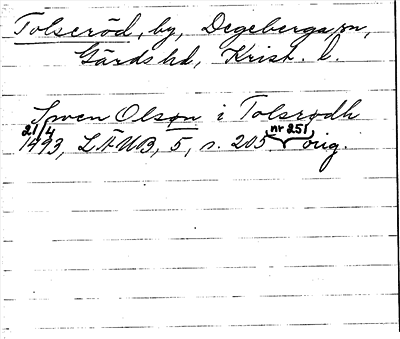 Tolseröd, by, Degeberga sn,
Gärds hd, Krist. l.
Swen Olson i Tolsrodh
21/4 1493, LÄUB, 5, s. 205 nr 251 orig.